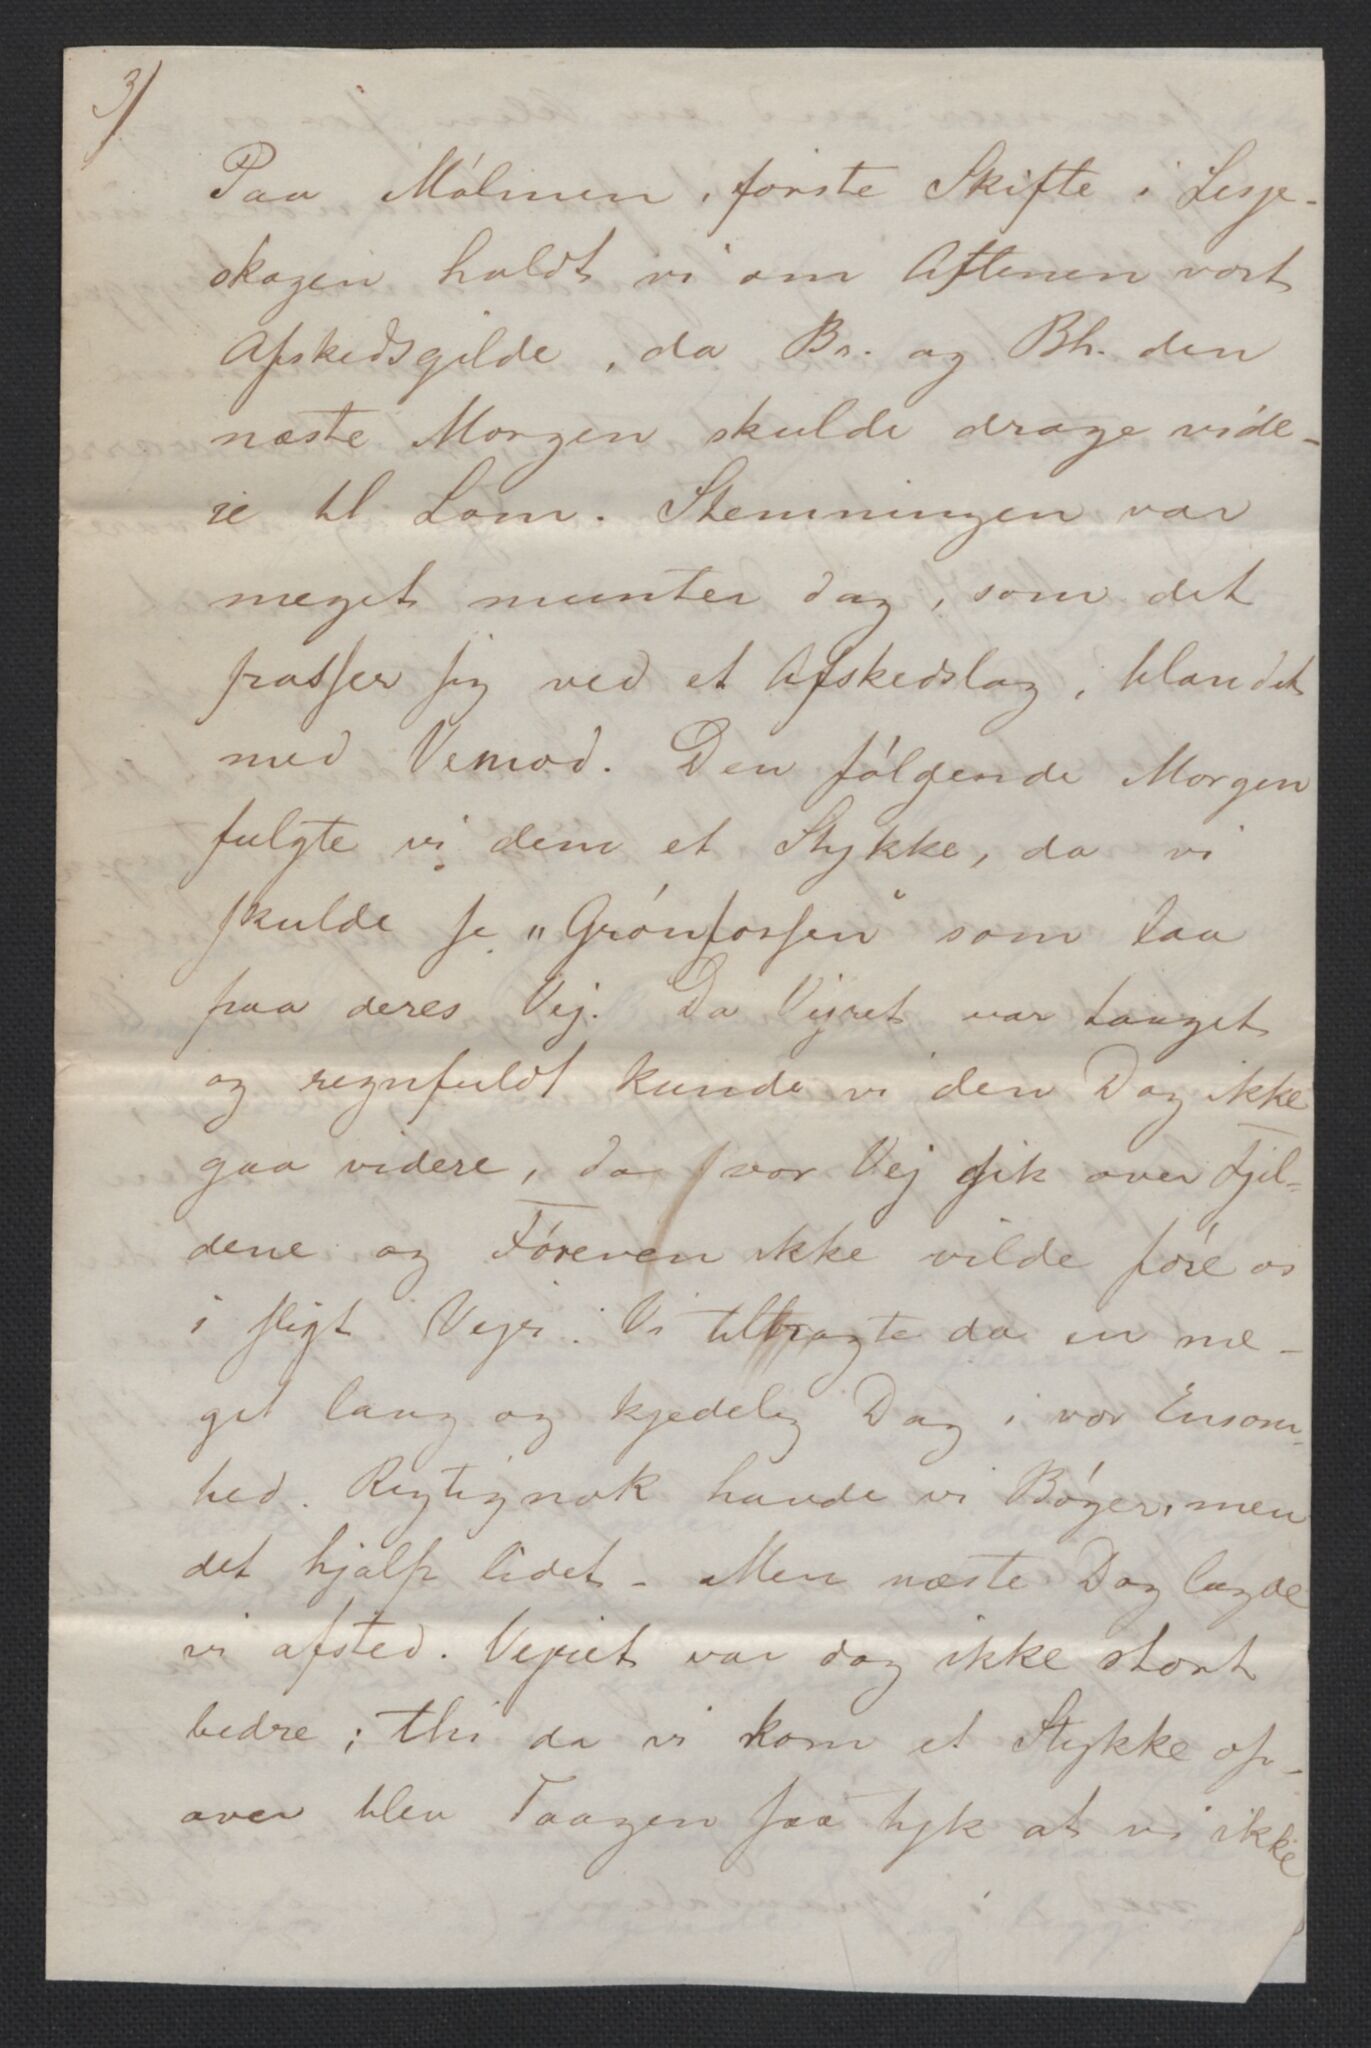 3/
Paa Mólmen, første Skifte i Lesje-
skogen holdt vi om Aftenen vort
Afskedsgilde, da Br. og Bh. den
næste Morgen skulde drage vide-
re til Lom. Stemningen var
meget munter dog, som det
passer sig ved et Afskedslag, blandet
med Vemod. Den fólgende Morgen
fulgte vi dem et Stykke, da vi
skulde se „Grónfossen" som laa
paa deres Vej. Da Vejret var taaget
og regnfuldt kunde vi den Dag ikke
gaa videre, da vor Vej gik over Fjel-
dene og Fóreren ikke vilde fóre os
i sligt Vejr. Vi tilbragte da en me-
get lang og kjedelig Dag i vor Ensom-
hed. Rigtignok havde vi Bóger, men
det hjalp lidet - Men næste Dag lagde
vi afsted. Vejret var dog ikke stort
bedre; thi da vi kom et Stykke op-
over blev Taagen saa tyk at vi ikke